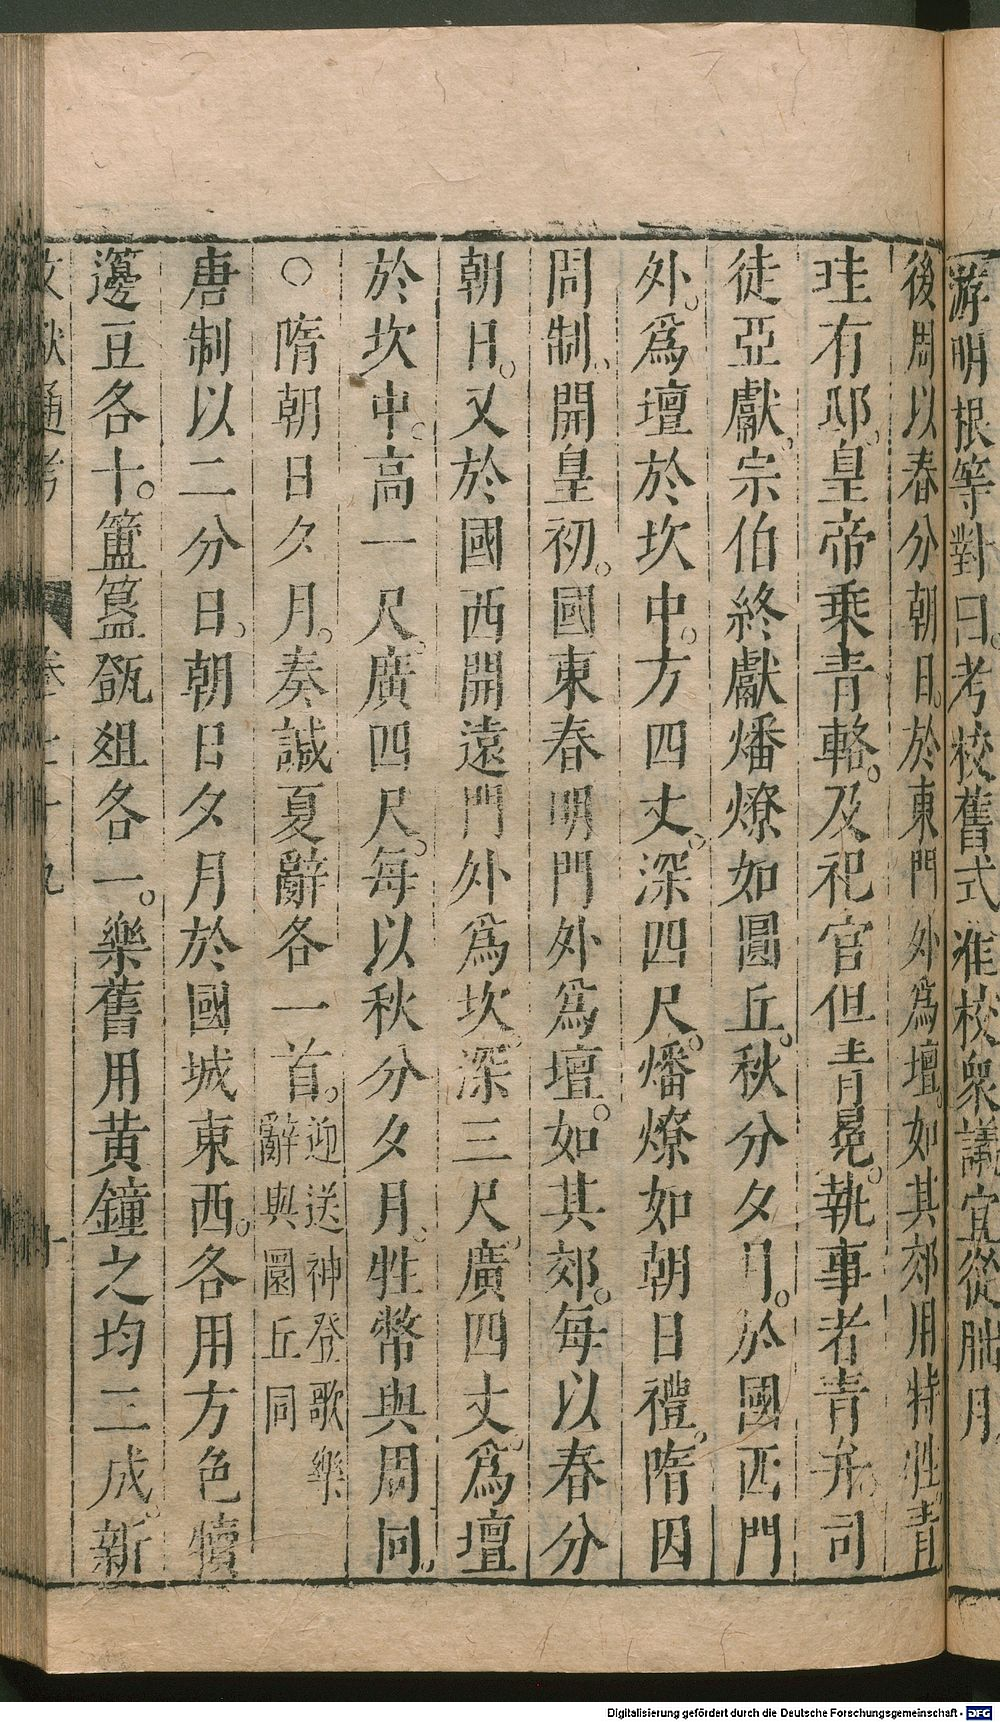 游明根等對曰。考校舊式准校衆議宜從朏月
後周以春分朝日。於東門外爲壇。如其郊用特牲。青
珪有邸。皇帝乘青輅。及祀官但青冕。執事者青弁。司
徒亞獻。宗伯終獻燔燎如圓丘。秋分夕月。於國西門
外。爲壇於坎中。方四丈。深四尺。燔燎如朝日禮。隋因
周制。開皇初。國東春明門外爲壇。如其郊。每以春分
朝日。又於國西開遠門外爲坎。深三尺。廣四丈。爲壇
於坎中。高一尺。廣四尺。每以秋分夕月。牲幣與周同。
○隋朝日夕月。奏諴夏辭各一首。迎送神登歌樂辭與圜丘同
唐制以二分日。朝日夕月於國城東西。各用方色犢
籩豆各十。簠簋㽅俎各一。樂舊用黃鐘之均三成。新
文獻通考 卷七十九 十
Digitalisierung gefördert durch die Deutsche Forschungsgemeinschaft - DFG